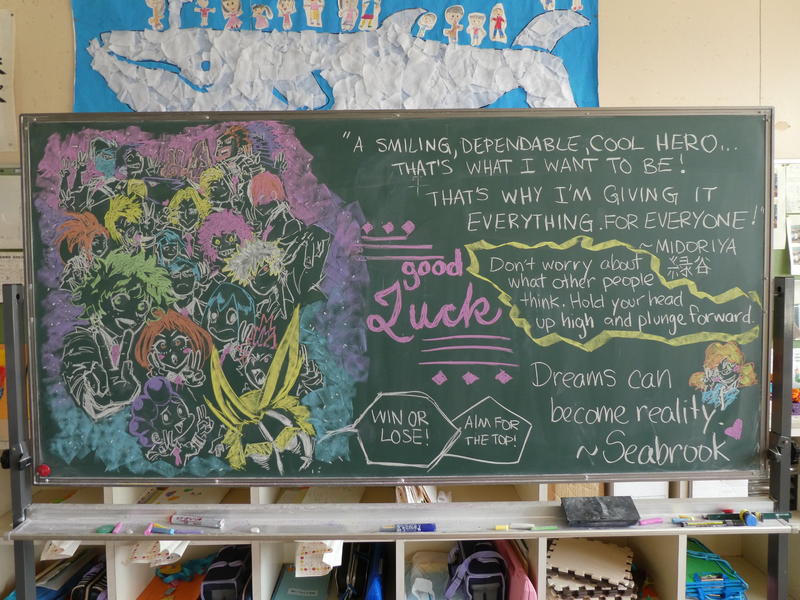 "A SMILING, DEPENDABLE, COOL HERO...
THAT'S WHAT I WANT TO BE!
THAT'S WHY I'M GIVING IT
EVERYTHING. FOR EVERYONE!"
~MIDORIYA
緑谷
good
Luck
Don't worry about
what other people
think. Hold your head
up high and plunge forward.
WIN OR
LOSE!
AIM FOR
THE TOP!
Dreams can
become reality.
~Seabrook